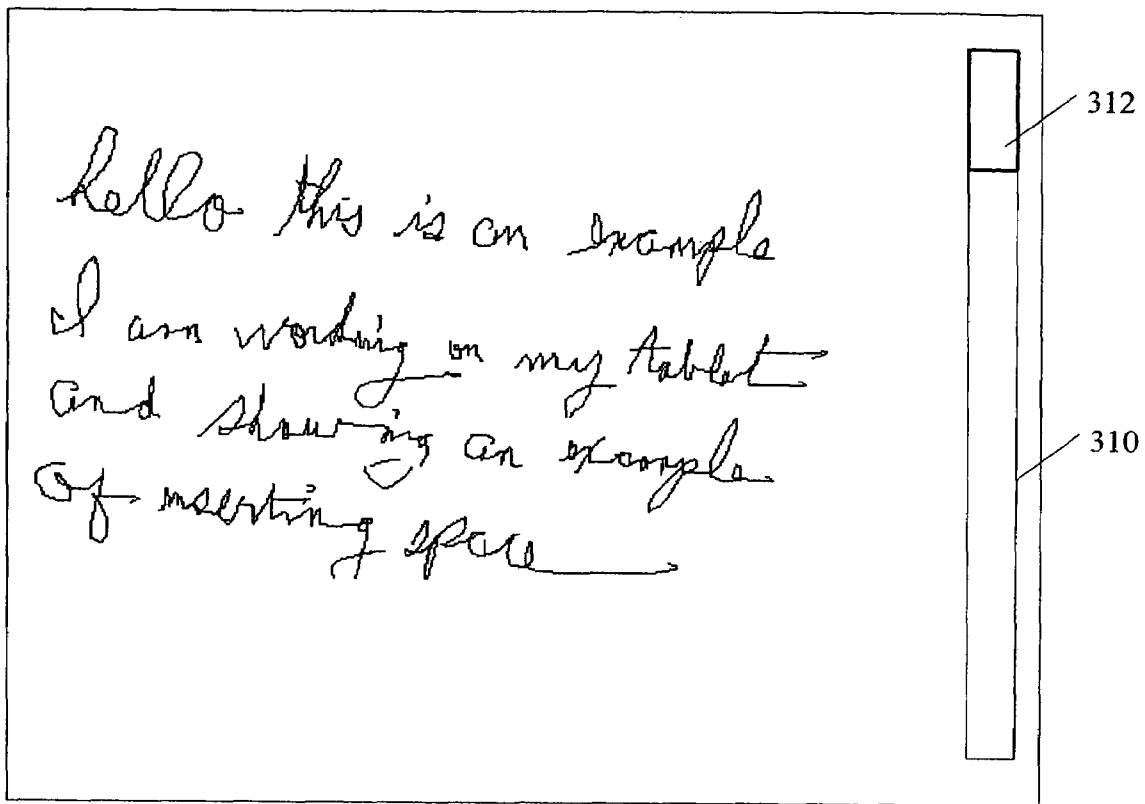 hello this is an example
I am working on my tablet
and showing an example
of inserting space
312
310